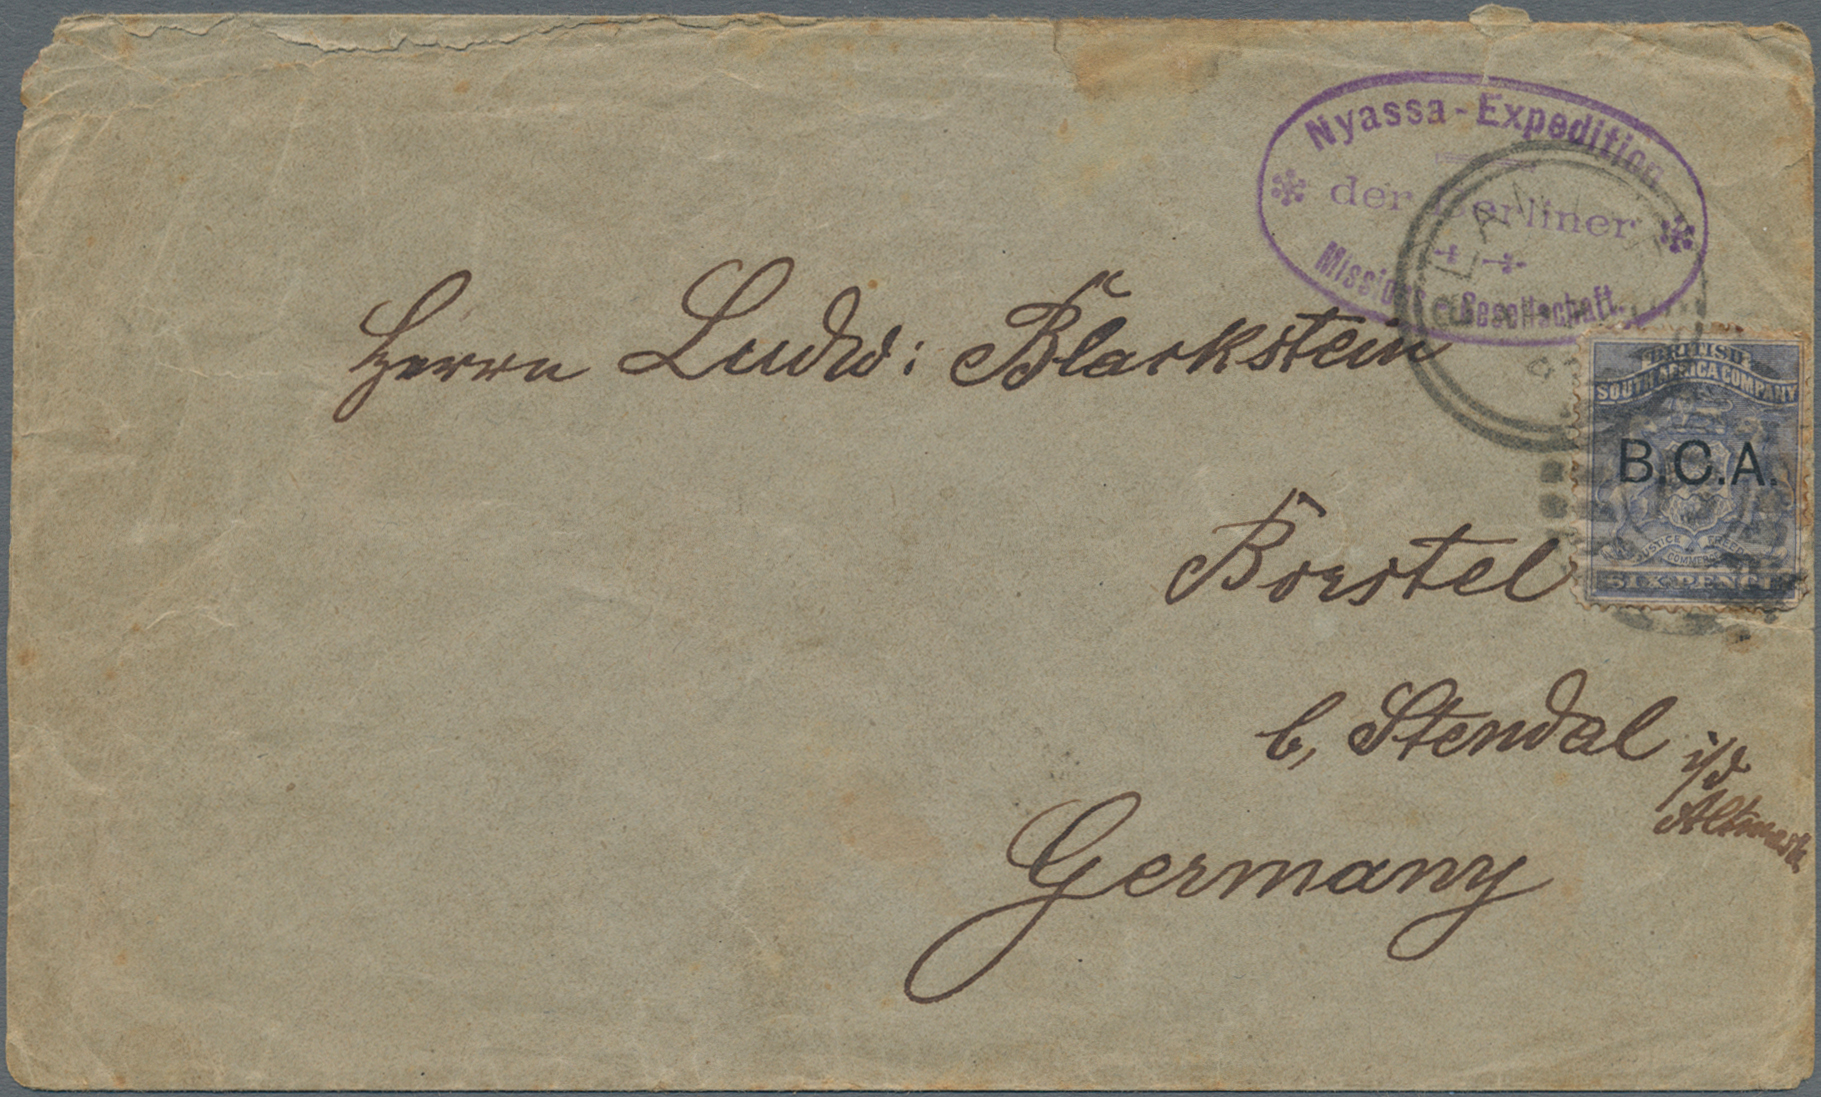 Nyassa - Expedition
der Berliner
Missions - Gesellschaft.
BRITISH
SOUTH AFRICA COMPANY
B.C.A.
JUSTICE FREEDOM
COMMERCE
SIX PENCE
Herrn Ludw: Blackstein
Borstel
b, Stendal i/d
Altmark
Germany